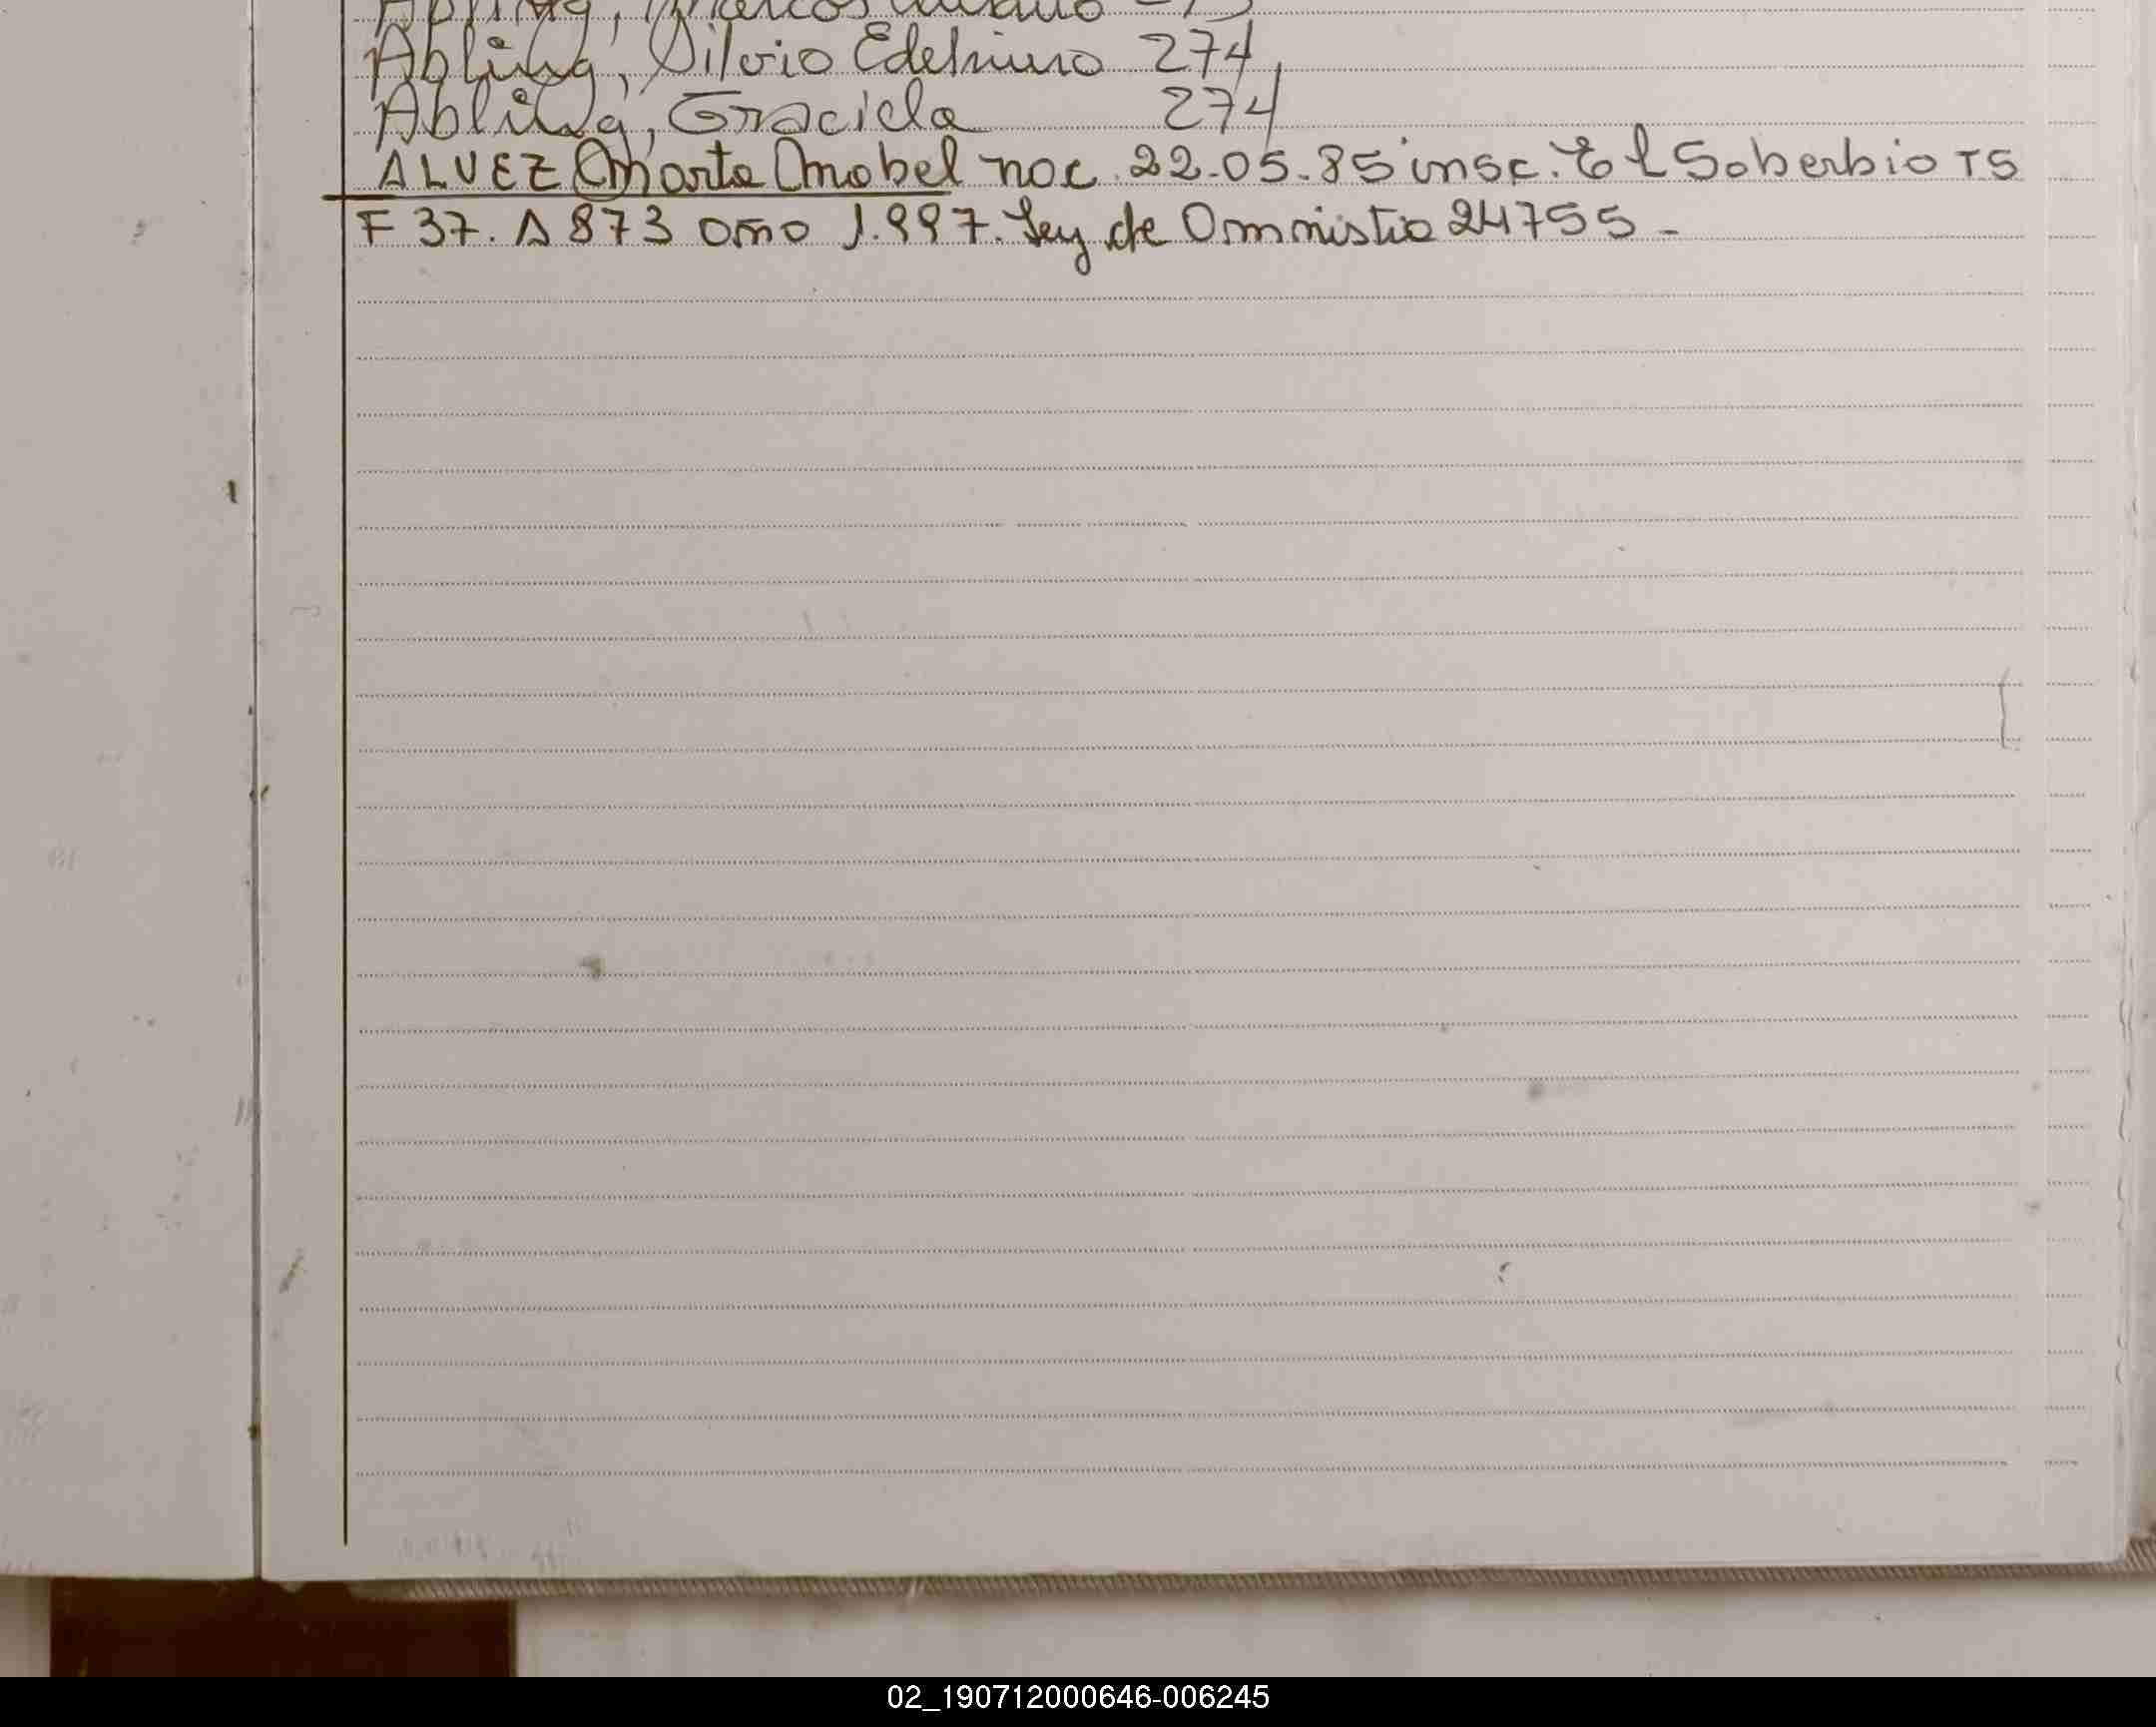 Abling, Marcos
Abling, Silvio Edelmiro 274
Abling, Graciela 274
ALVEZ Marta Mabel nac. 22-05-85 insc. El Soberbio T5
F 37. A 873 año 1.997. Ley de Amnistia 24755 -
02_190712000646-006245